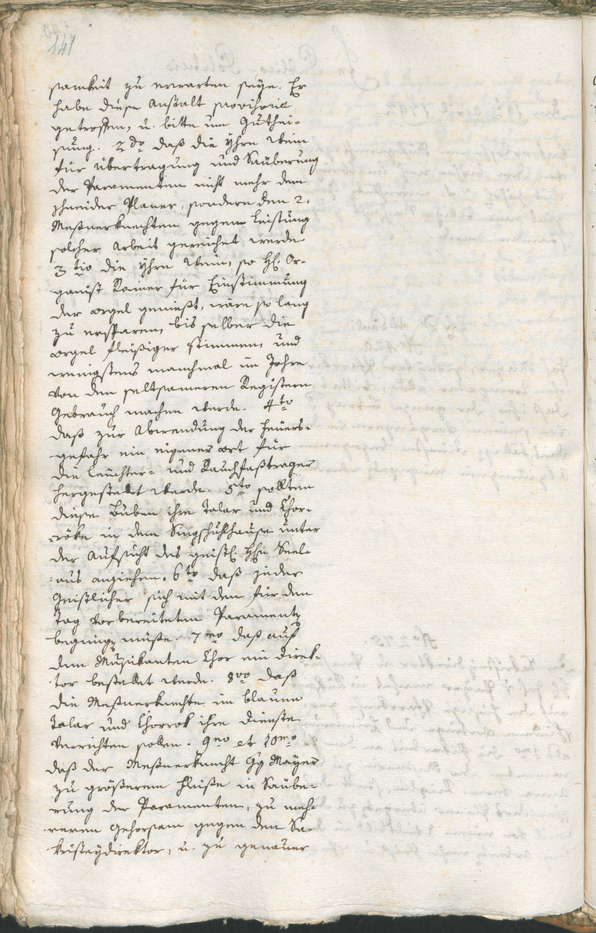 441
samkeit zu erwarten seye. Er
habe diese Anstalt provisorie
getroffen, u. bitte um Guthei-
sung. 2do daß die Yhre Wein
für übertragung und Säuberung
der Paramenten nicht mehr dem
Schneider Planer, sondern den 2.
Meßnerknechten gegen Leistung
solcher Arbeit gereichet werde
3tio die Yhre Wein, so H. Or-
ganist Kamer für Einstimmung
der orgel genießt, wäre so lang
zu ersparen, bis selber die
orgel fleißiger stimmen, und
wenigstens manchmal im Jahre
von den seltsameren Registern
Gebrauch machen werde. 4to
daß zur Abwendung der Feuers-
gefahr ein eigener ort für
die Leuchter- und Rauchfaßtrager
hergestellt werde. 5to sollten
diese Buben ihre Talar und Chor-
röke in dem Singschulhause unter
der Aufsicht des geistl. Hrn
aus anziehen. 6to daß jeder
Geistlicher sich mit den für den
Tag vorbereiteten Paramenten
begnügen müße. 7mo daß auf
dem Musikanten Chor ein Direk-
tor bestellet werde. 8vo daß
die Meßnerknechte im blauen
Talar und Chorrok ihre Dienste
verrichten sollen. 9no et 10mo
daß der Meßnerknecht Gg Mayer
zu größerem Fleiße in Säube-
rung der Paramenten, zu meh-
rerem Gehorsam gegen den Sa-
kristeydirektor, u. zu genauer